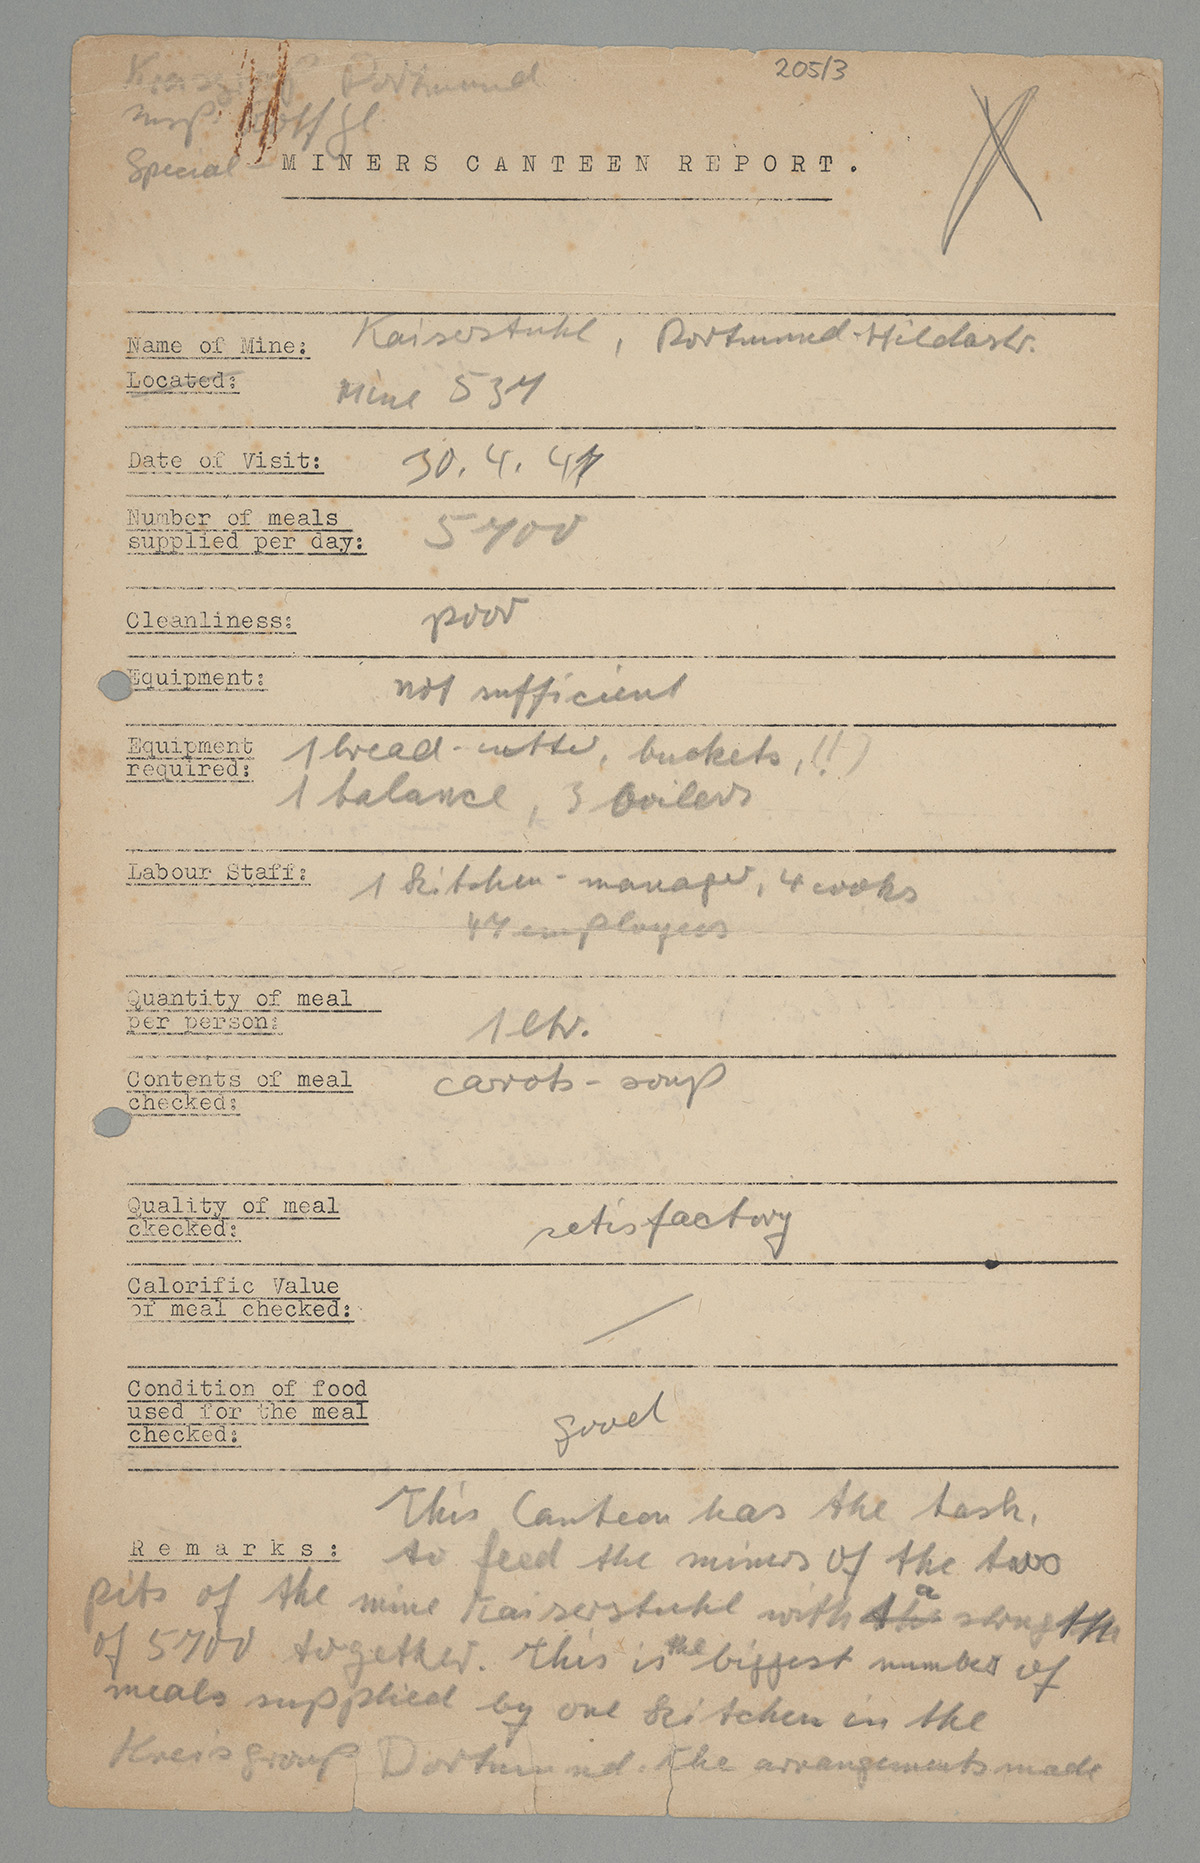 205/3
Kreisgroup Dortmund
Special
MINERS CANTEEN REPORT.
Name of Mine: Kaiserstuhl, Dortmund-Hildastr.
Located: Mine 537
Date of Visit: 30. 4. 47
Number of meals
supplied per day: 5700
Cleanliness: poor
Equipment: not sufficient
Equipment 1 bread-cutter, buckets, (!!)
required: 1 balance, 3 boilers
Labour Staff: 1 kitchen-manager, 4 cooks
47 employees
Quantity of meal
per person: 1 ltr.
Contents of meal carots-soup
checked:
Quality of meal
ckecked: satisfactory
Calorific Value
of meal checked: /
Condition of food
used for the meal good
checked:
This Canteen has the task,
Remarks: to feed the miners of the two
pits of the mine Kaiserstuhl with a
of 5700 together. This is the biggest number of
meals supplied by one kitchen in the
Kreisgroup Dortmund. The arrangements made